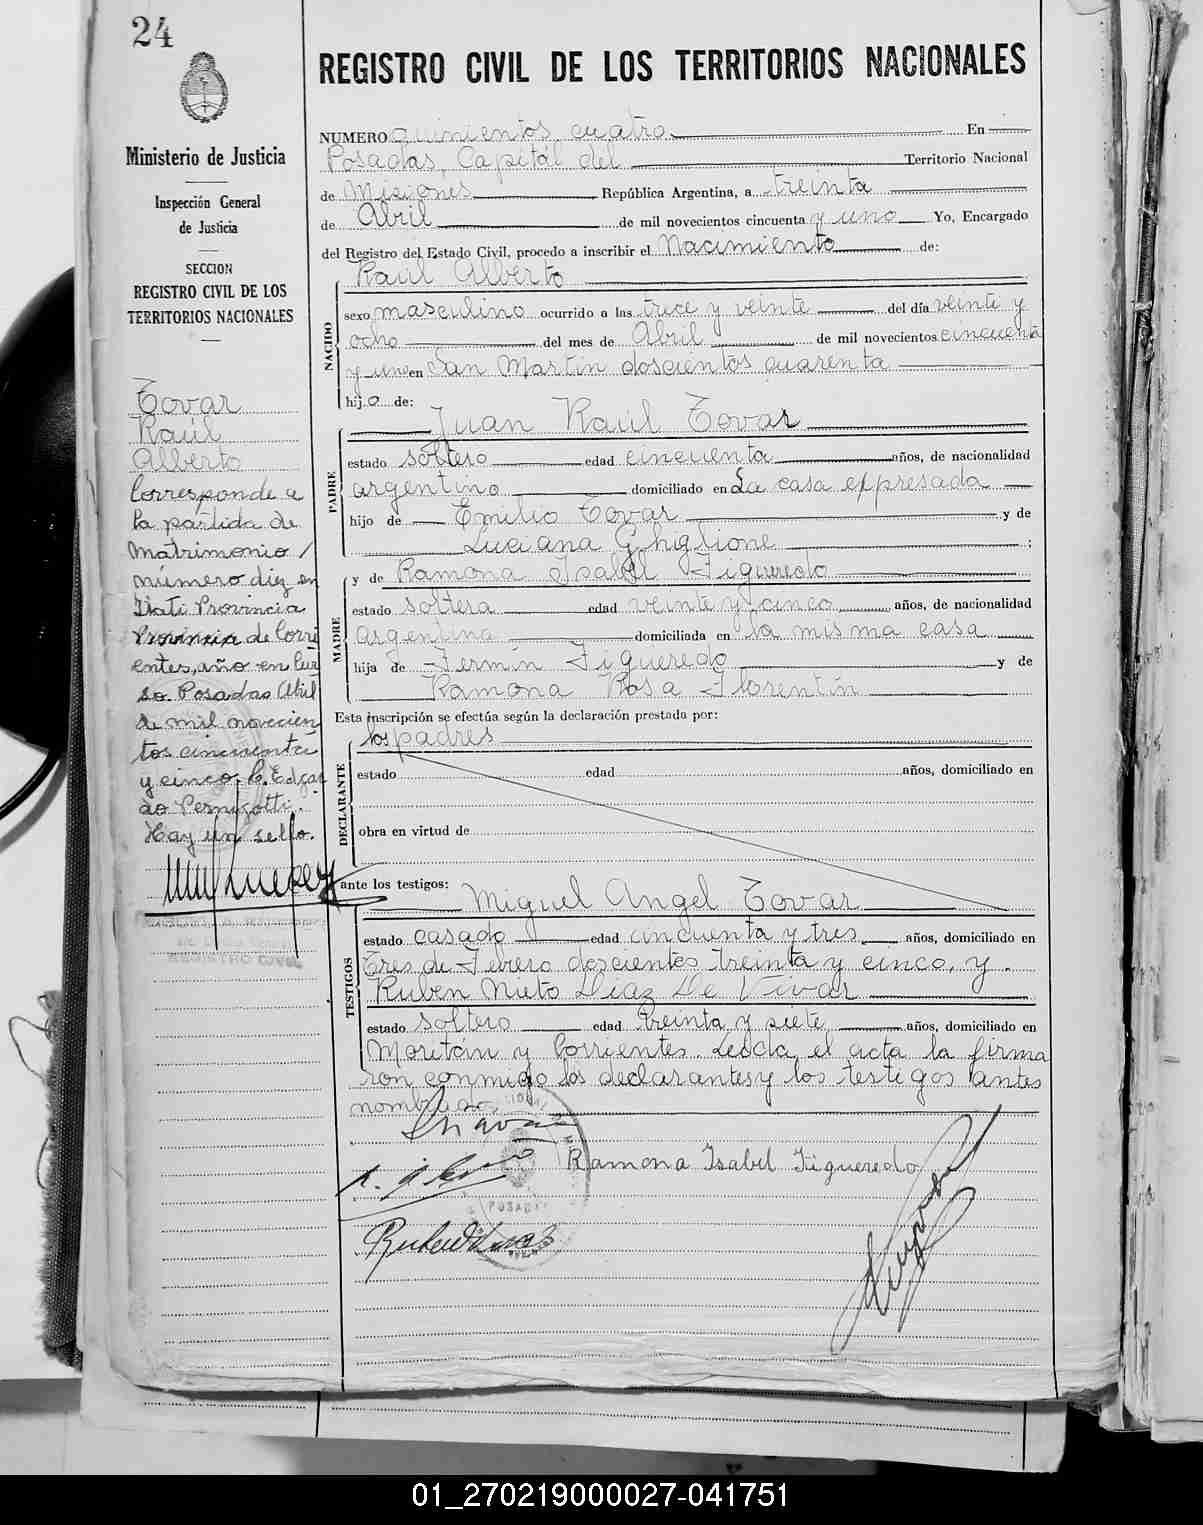 24
Ministerio de Justicia
Inspección General
de Justicia
SECCION
REGISTRO CIVIL DE LOS
TERRITORIOS NACIONALES
Tovar
Raúl
Alberto
Corresponde a
la partida de
matrimonio /
número diez en
Itatí Provincia
Provincia de Corri
entes, año en cur
so. Posadas Abril
de mil novecien
tos cincuenta
y cinco. C. Edgar
do Pernigotti.
Hay un sello.
REGISTRO CIVIL
REGISTRO CIVIL DE LOS TERRITORIOS NACIONALES
NUMERO quinientos cuatro En
Posadas, Capital del Territorio Nacional
de Misiones República Argentina, a treinta
de Abril de mil novecientos cincuenta y uno Yo, Encargado
del Registro del Estado Civil, procedo a inscribir el Nacimiento de:
NACIDO
Raúl Alberto
sexo masculino ocurrido a las trece y veinte del día veinte y
ocho del mes de Abril de mil novecientos cincuenta
y uno en San Martin doscientos cuarenta
hijo de:
PADRE
Juan Raúl Tovar
estado soltero edad cincuenta años, de nacionalidad
argentino domiciliado en La casa expresada
hijo de Emilio Tovar y de
Luciana Ghiglione ;
MADRE
y de Ramona Isabel Figueredo
estado soltera edad veinte y cinco años, de nacionalidad
argentina domiciliada en la misma casa
hija de Fermín Figueredo y de
Ramona Rosa Florentín
Esta inscripción se efectúa según la declaración prestada por:
DECLARANTE
los padres
estado edad años, domiciliado en
obra en virtud de
ante los testigos:
TESTIGOS
Miguel Angel Tovar
estado casado edad cincuenta y tres años, domiciliado en
Tres de Febrero doscientos treinta y cinco, y.
Ruben Nieto Diaz De Vivar
estado soltero edad treinta y siete años, domiciliado en
Moritán y Corrientes. Leída el acta la firma
ron conmigo los declarantes y los testigos antes
nombrados.
Ramona Isabel Figueredo
POSADAS
01_270219000027-041751